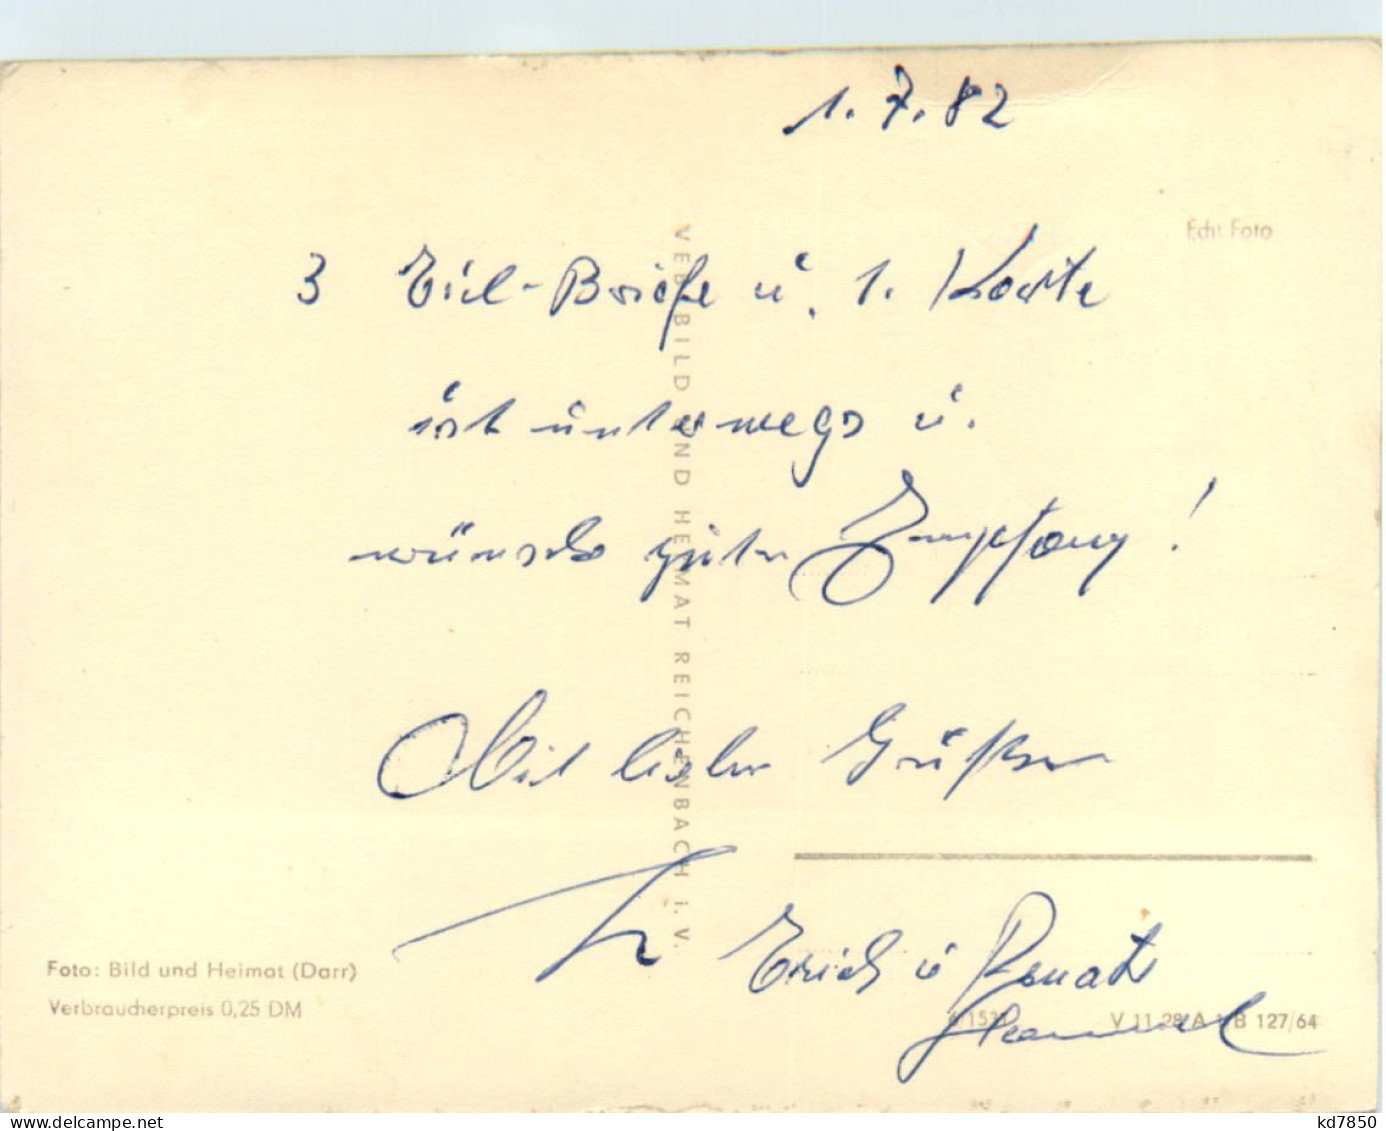 1. 7. 82
Echt Foto
3 Eil-Briefe u. 1. Karte
ist unterwegs u.
wünsche guten Empfang!
Mit lieben Grüßen
Erich u Renate
VEB BILD UND HEIMAT REICHENBACH i. V.
Foto: Bild und Heimat (Darr)
Verbraucherpreis 0,25 DM
V 11 28 A 1/B 127/64
kd7850